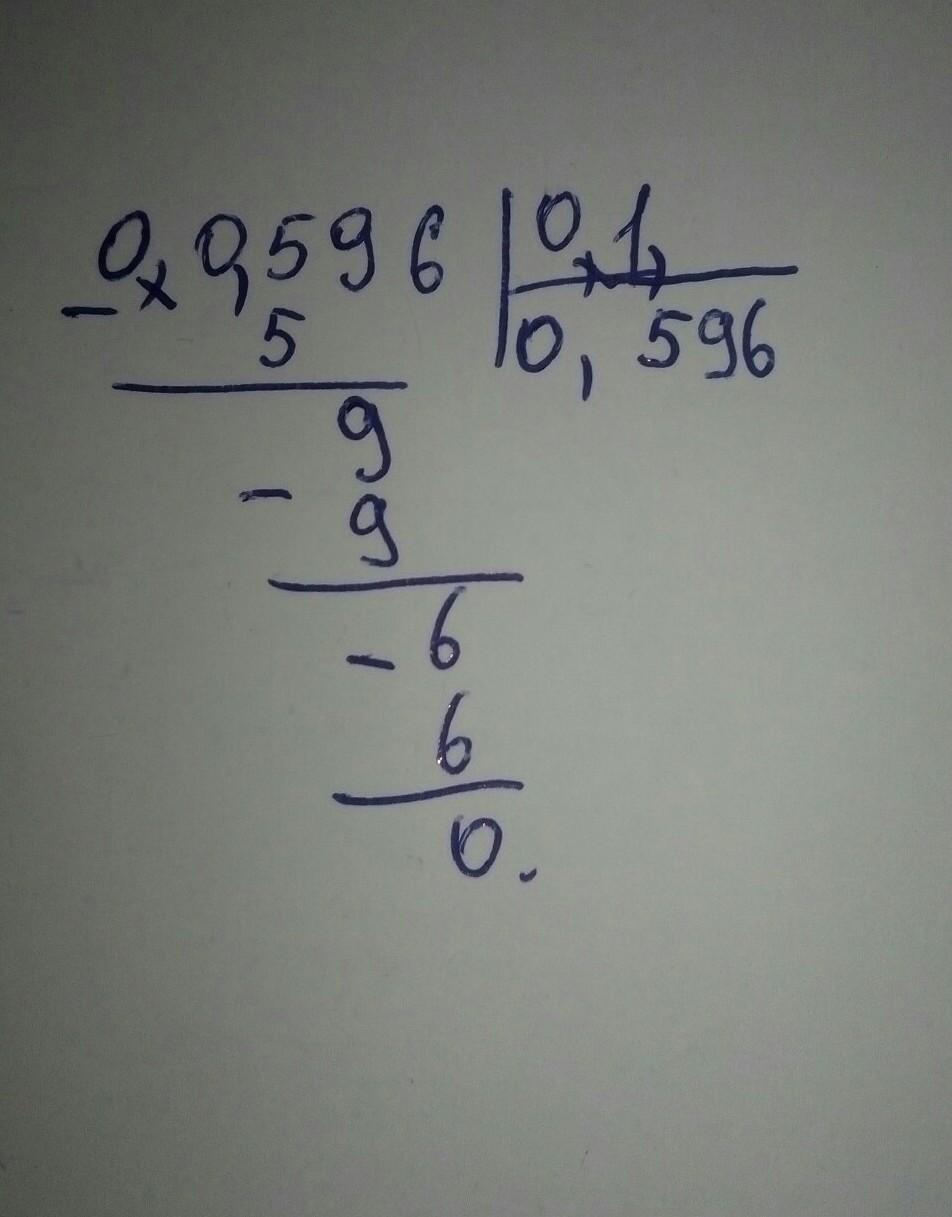 0,0,596 | 0,1,
5 | 0,596
9
- 9
- 6
6
0.